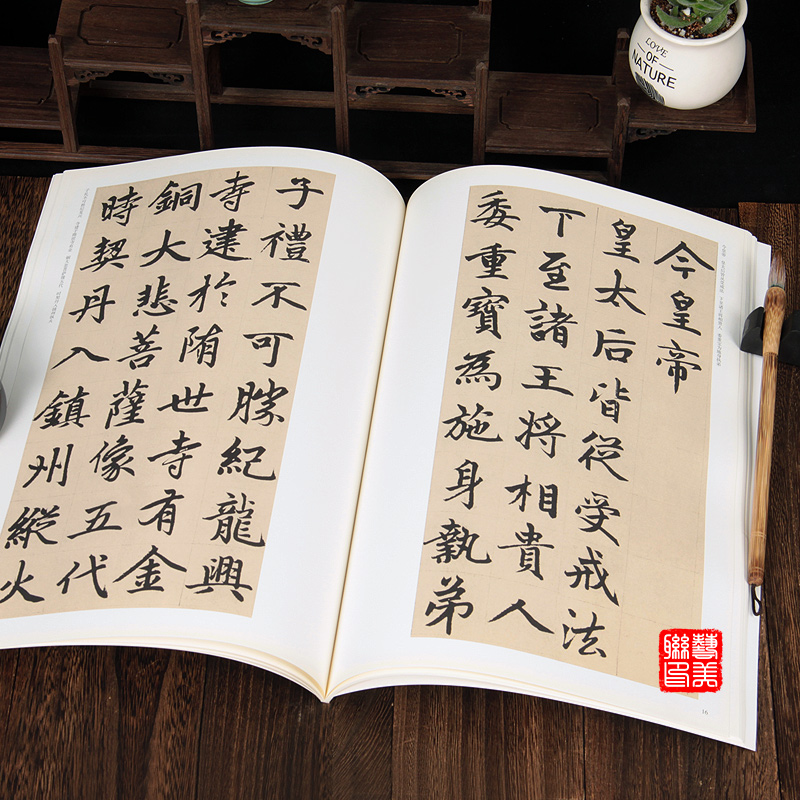 LOVE
OF
NATURE
今皇帝
皇太后皆從受戒法
下至諸王將相貴人
委重寶為施身執弟
子禮不可勝紀龍興
寺建於隋世寺有金
銅大悲菩薩像五代
時契丹入鎮州縱火
16